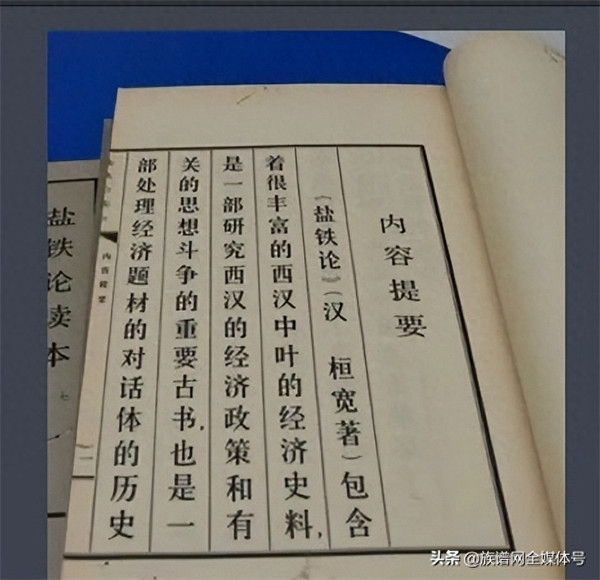 内容提要
《盐铁论》（汉 桓宽著）包含
着很丰富的西汉中叶的经济史料，
是一部研究西汉的经济政策和有
关的思想斗争的重要古书，也是一
部处理经济题材的对话体的历史
内容提要
一
盐铁论读本
七
头条 @族谱网全媒体号